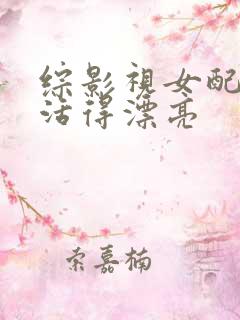 综影视女配
活得漂亮
索嘉楠